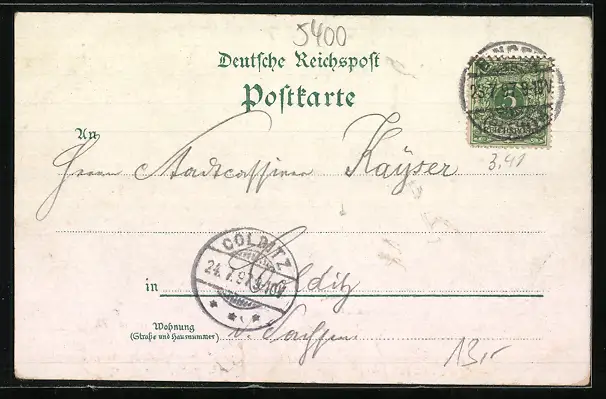 5400
Deutsche Reichspost
Postkarte
BINGE
25 7 97 8-9 V.
5
An
Herrn Stadtcassirer Kayser
3,41
COLDITZ
24. 7. 97. 9-10V
in Colditz
Wohnung
(Straße und Hausnummer)
i. Sachsen
13,-